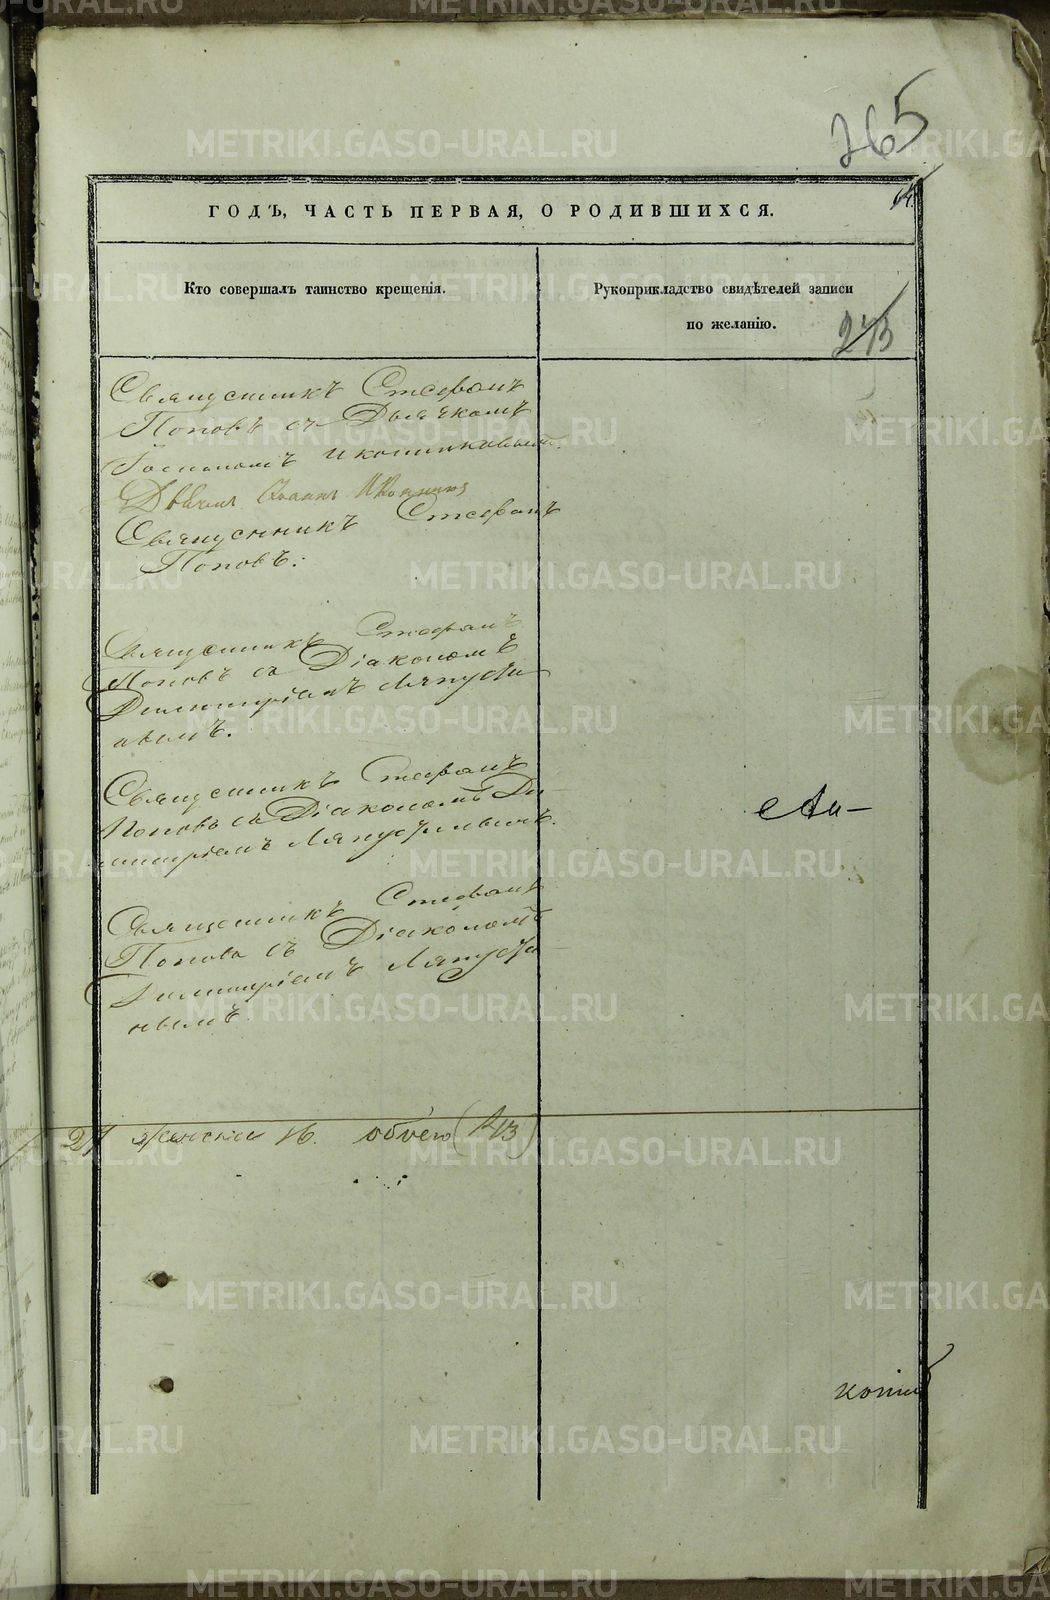 265
14.
ГОДЪ, ЧАСТЬ ПЕРВАЯ, О РОДИВШИХСЯ.
Кто совершалъ таинство крещенія.
Рукоприкладство свидѣтелей записи
по желанію.
273
Священникъ Стефанъ
Поповъ съ Дьячкомъ
Иконниковымъ.
Священникъ Стефанъ
Поповъ.
Священникъ Стефанъ
Поповъ съ Діакономъ
Димитріемъ Ляпусти
нымъ.
Священникъ Стефанъ
Поповъ съ Діакономъ Ди
митріемъ Ляпустинымъ.
Священникъ Стефанъ
Поповъ съ Діакономъ
Димитріемъ Ляпусти
нымъ
27 женска 16. обоего (43)
METRIKI.GASO-URAL.RU